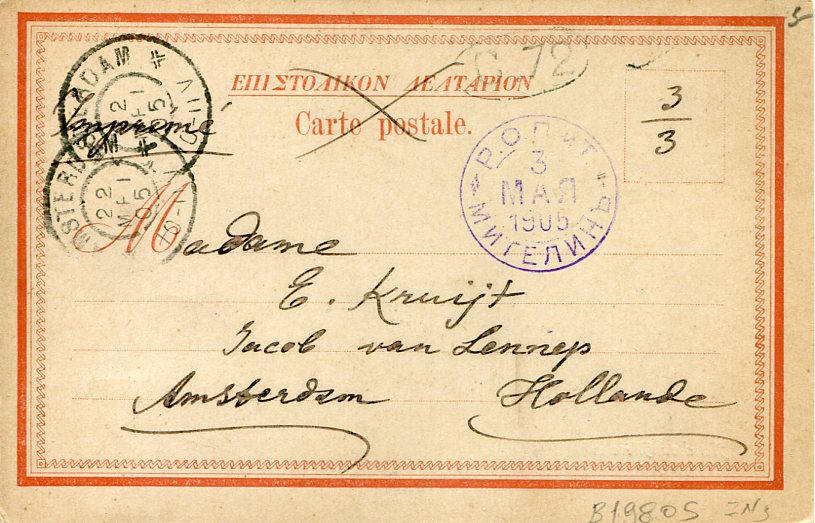 G. 72
5
ΕΠΙΣΤΟΛΙΚΟΝ ΔΕΛΤΑΡΙΟΝ
Imprimé
Carte postale.
3
3
AMSTERDAM
22 MEI 05
AMSTERDAM
22 MEI 05
Р.О.П.И.Т.
3
МАЯ
1905
МИТЕЛИНЪ
Madame
E. Kruijt
Jacob van Lennep
Amsterdam Hollande
B19805 INs